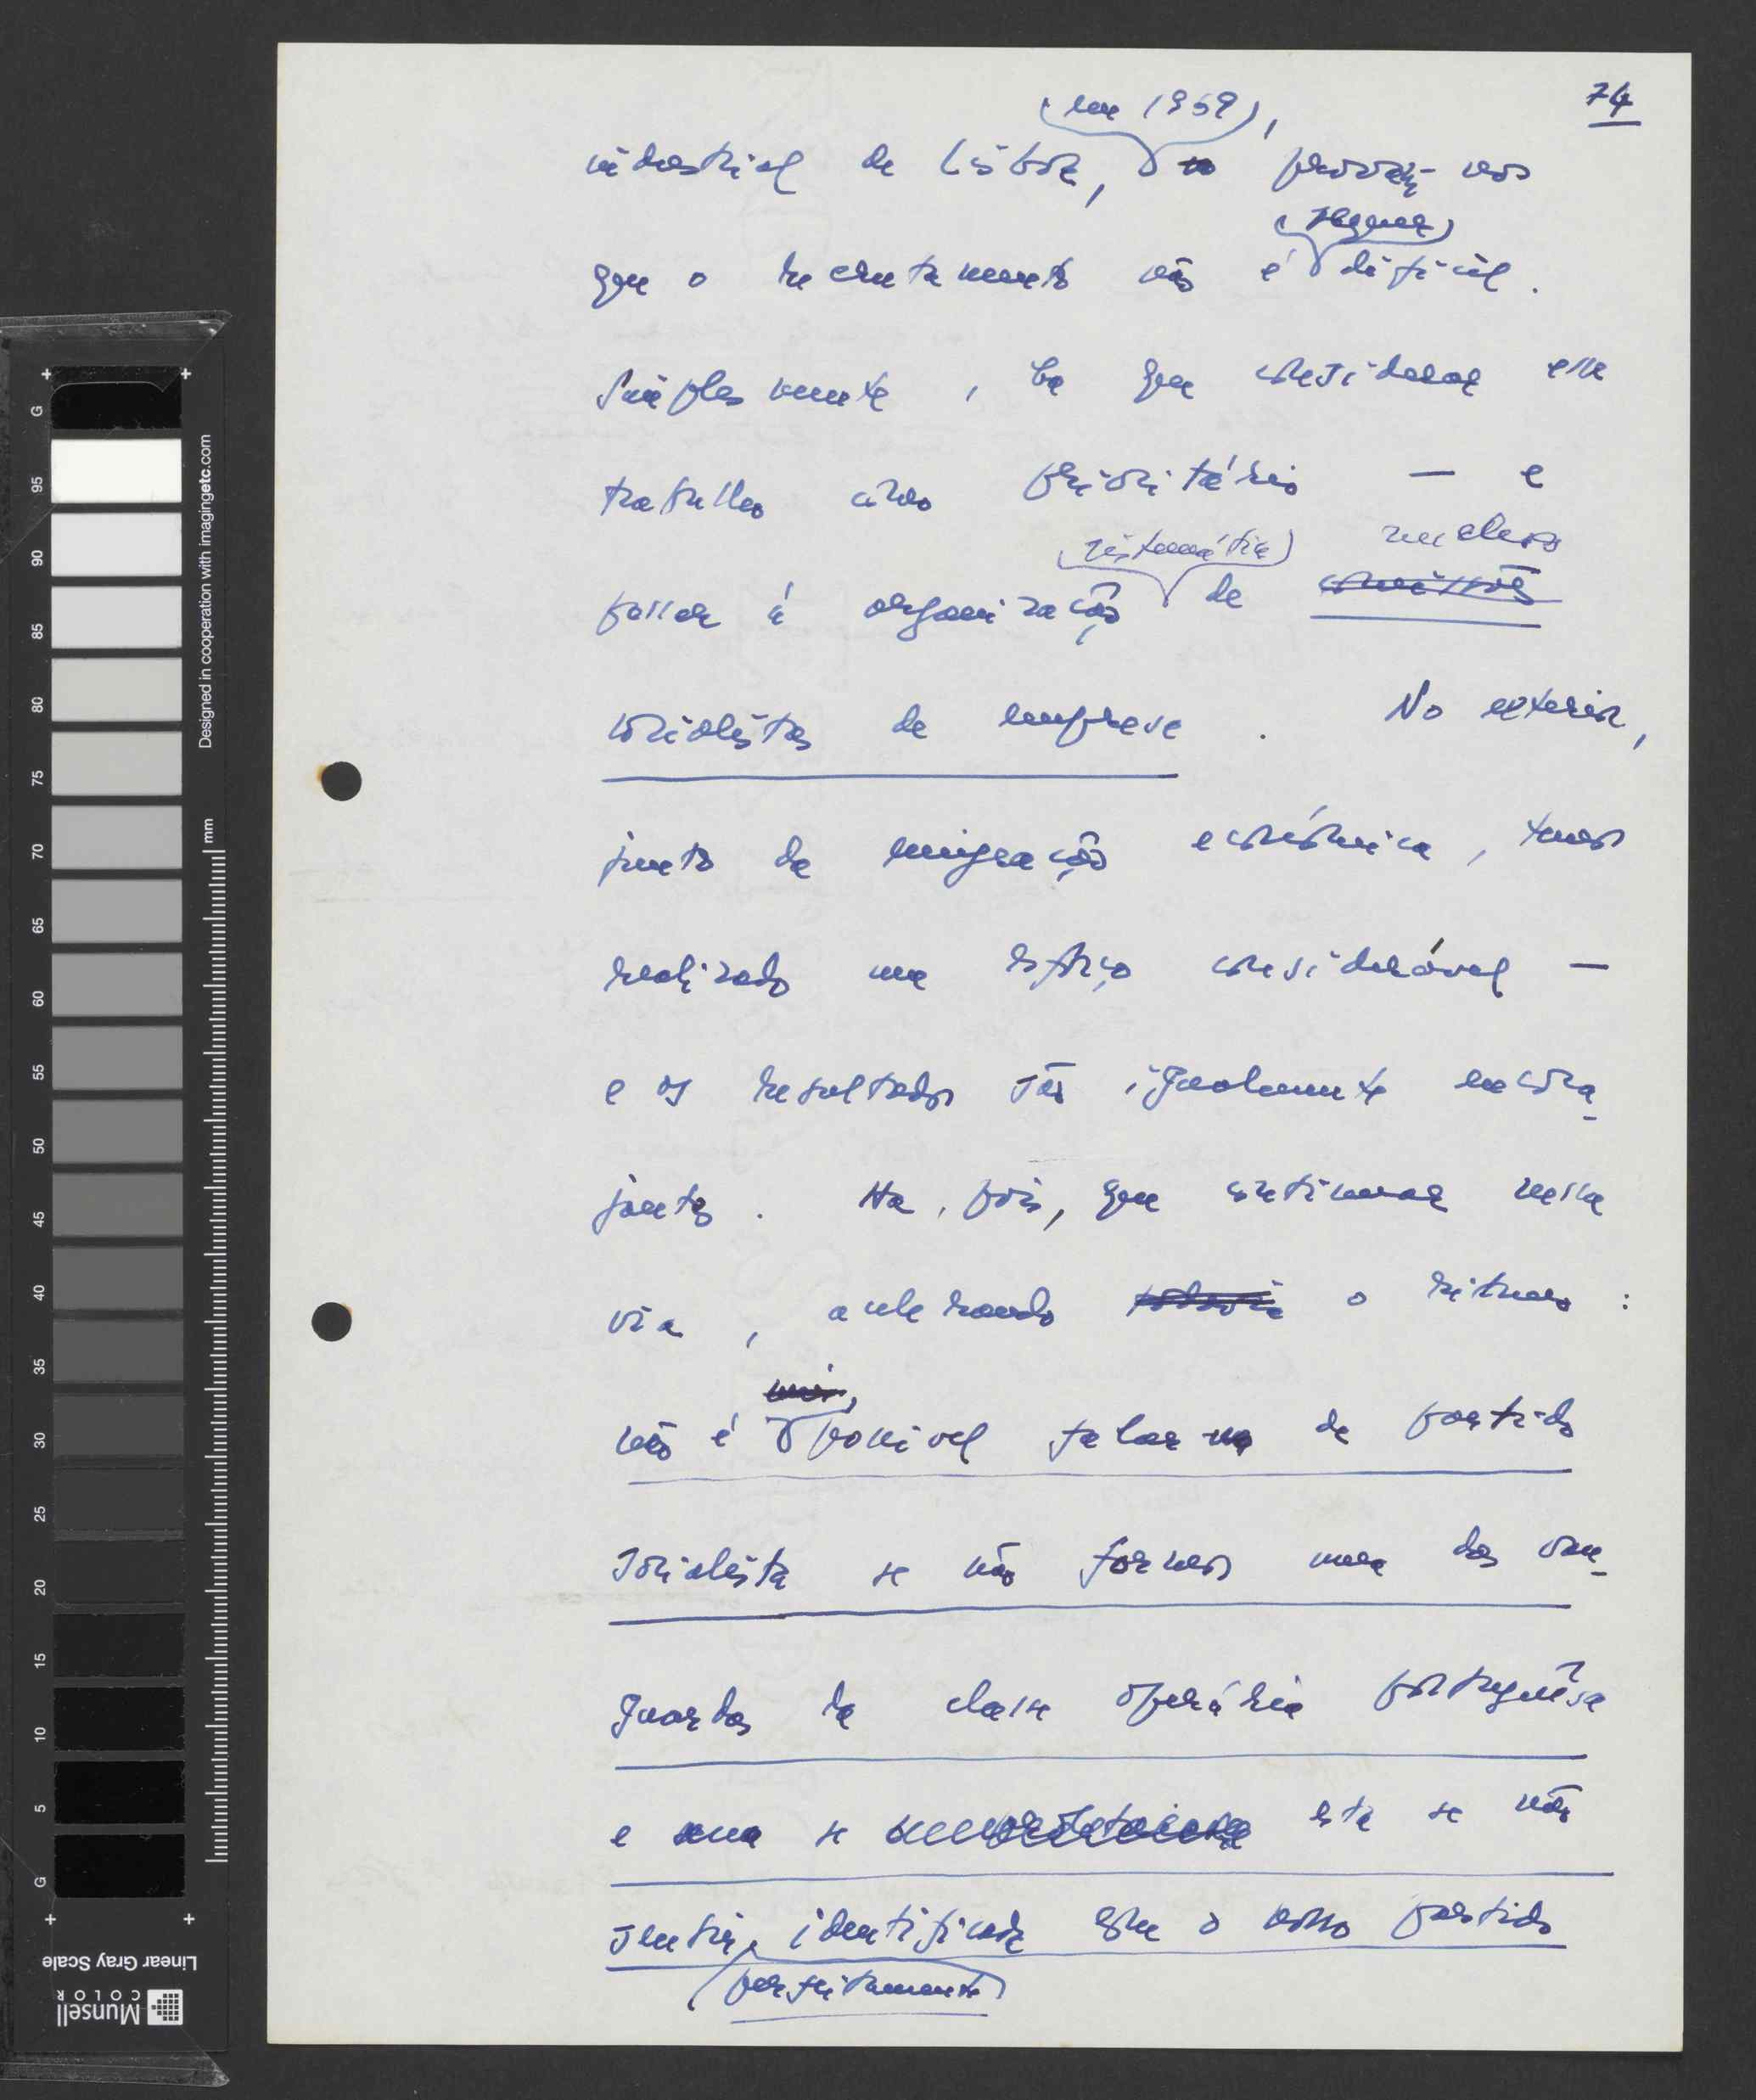 74
(em 1959),
industrial de Lisboa, provam-nos
(sequer)
que o recrutamento não é difícil.
Simplesmente, há que considerar esse
trabalho como prioritário — e
(sistemática) nucleos
passar à organização de comissões
socialistas de empresa. No exterior,
junto da emigração económica, temos
realizado um esforço considerável —
e os resultados são igualmente encora-
jantes. Há, pois, que continuar nessa
via, acelerando todavia o ritmo:
não é possível falar de partido
socialista se não formos uma das van-
guardas da classe operária portuguêsa
e se esta se não
sentir identificada com o nosso partido
(perfeitamente)
G 95 90 85 80 75 70 65 60 55 50 45 40 35 30 25 20 15 10 5 G
Designed in cooperation with imagingetc.com
mm
Linear Gray Scale
Munsell
COLOR